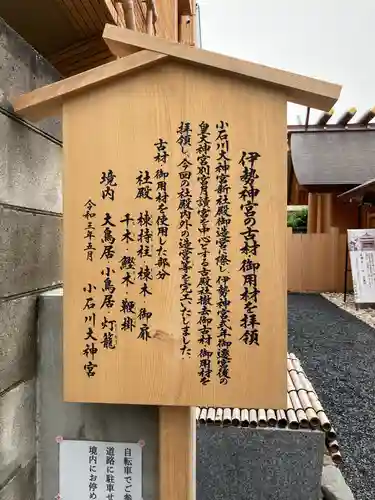 伊勢神宮の古材・御用材を拝領
小石川大神宮新社殿御造営に際し、伊勢神宮式年御遷宮後の
皇大神宮別宮月讀宮を中心とする古殿社撤去御古材・御用材を
拝領し、今回の社殿内外の造営等を完工いたしました
古材・御用材を使用した部分
社殿 棟持柱・棟木・御扉
千木・鰹木・鞭掛
境内 大鳥居・小鳥居・灯籠
令和三年五月 小石川大神宮
自転車でご
道路に駐車せ
境内にお停め